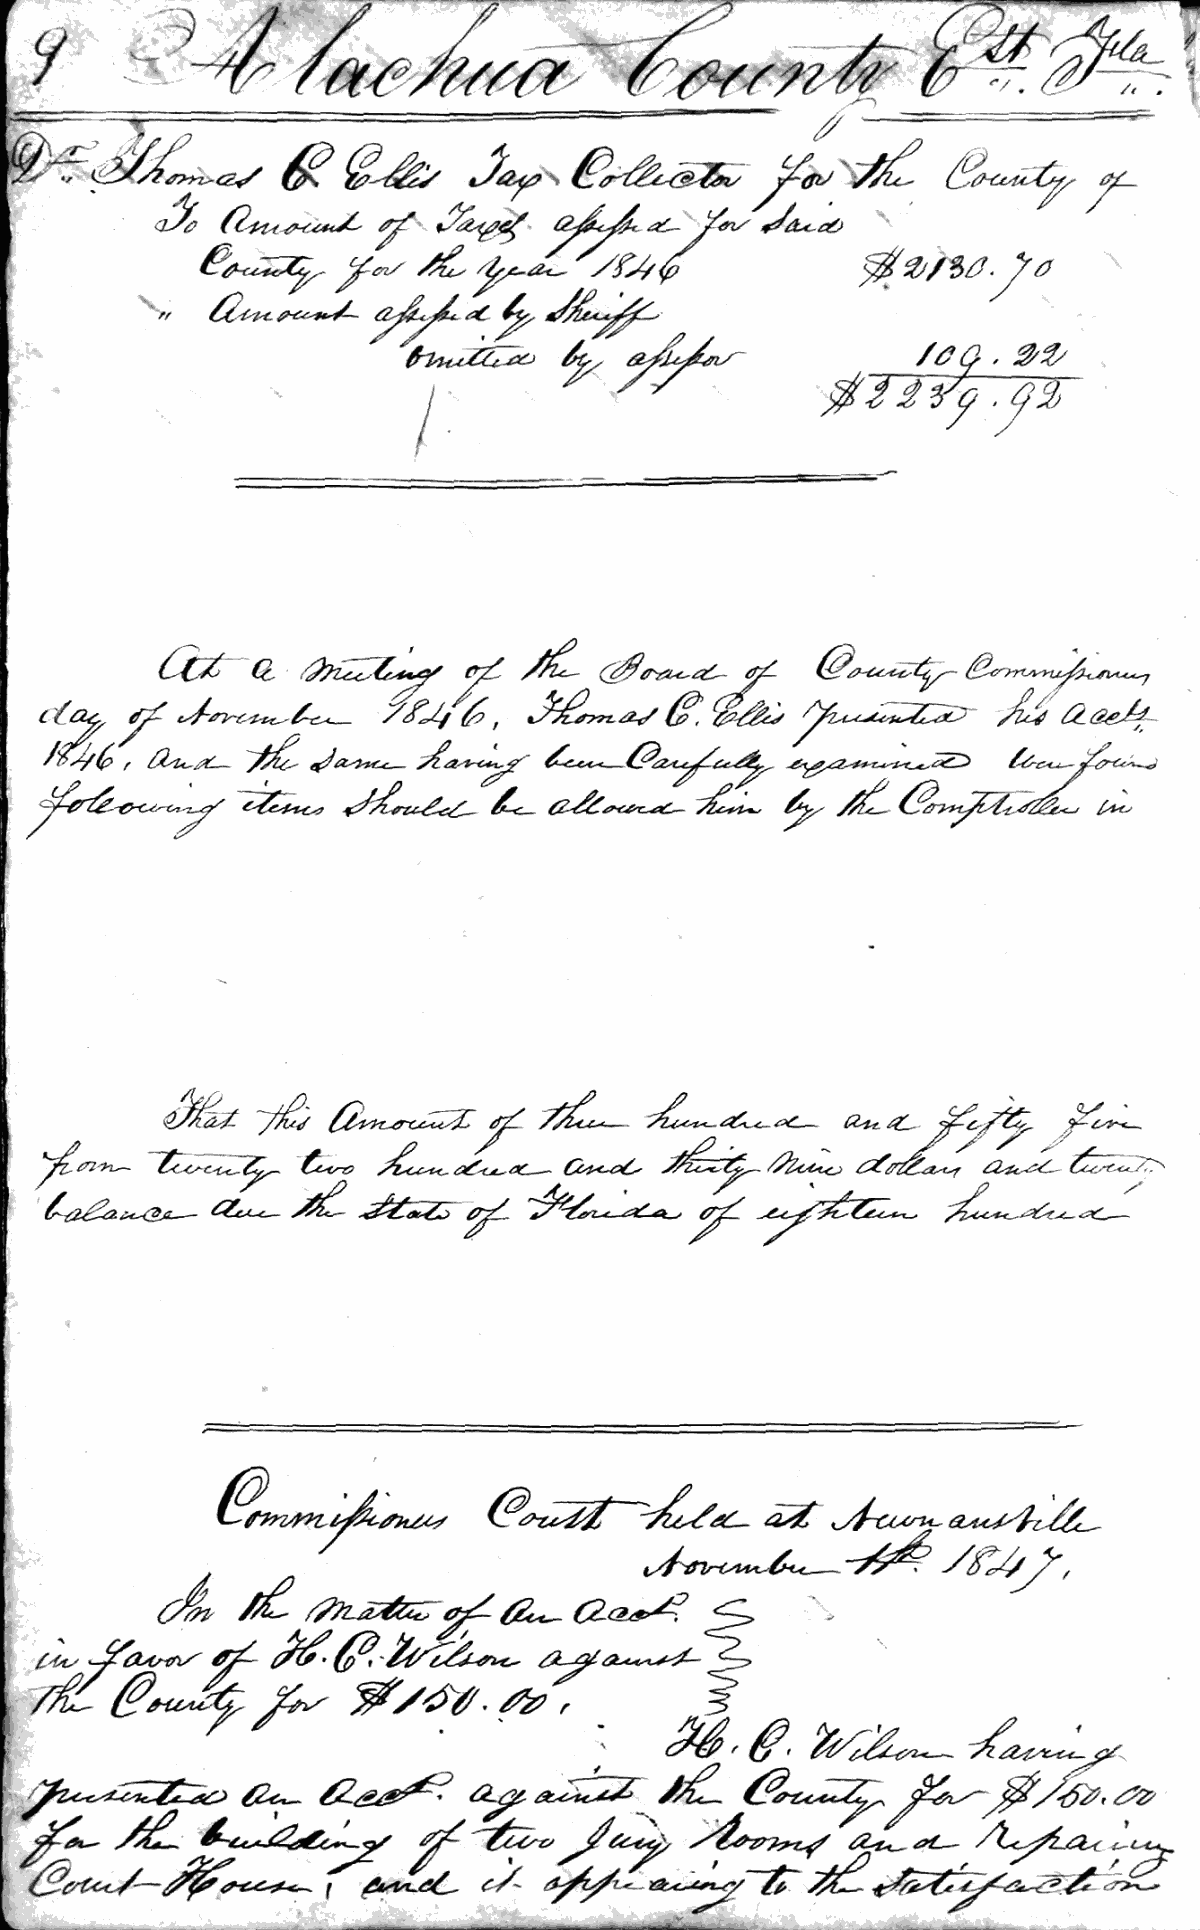 9 Alachua County Est. Fla.
Dr. Thomas C Ellis Tax Collector for the County of
To Amount of Taxes assessed for Said
County for the year 1846 $2130.70
" Amount assessed by Sheriff
omitted by assessor 109.22
$2239.92
At a meeting of the Board of County Commissioners
day of November 1846, Thomas C. Ellis presented his acct.
1846, and the same having been Carefully examined were found
following items should be allowed him by the Comptroller in
That this Amount of three hundred and fifty five
from twenty two hundred and thirty nine dollars and twenty
balance due the State of Florida of eighteen hundred
Commissioners Court held at Newnansville
November 1st. 1847.
In the matter of an acct.
in favor of H. C. Wilson against
the County for $150.00.
H. C. Wilson having
presented an acct. against the County for $150.00
for the building of two Jury Rooms and repairing
Court House, and it appearing to the satisfaction